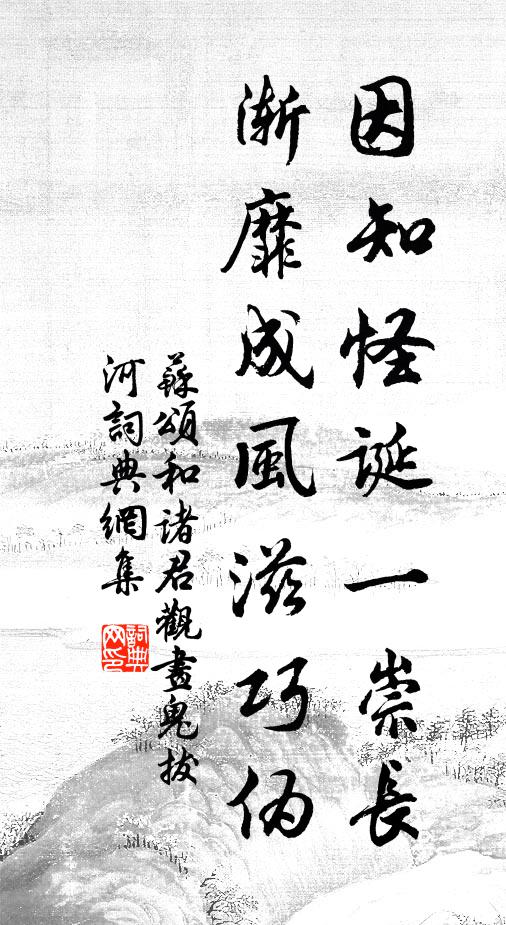 因知怪誕一崇長
漸靡成風滋巧偽
蘇頌和诸君觀畫鬼拔
河詞典網集
詞典